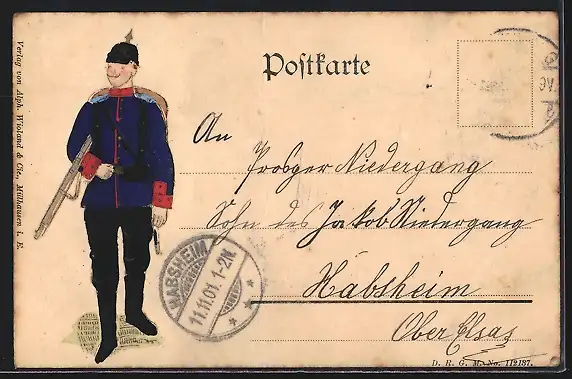 Postkarte
Verlag von Alph. Wioland & Cie., Mülhausen i. E.
An
Prosper Niedergang
Sohn des Jakob Niedergang
HABSHEIM
11.11.01. 1-2N.
Habsheim
Ober Elsaß
D. R. G. M. No. 112187.